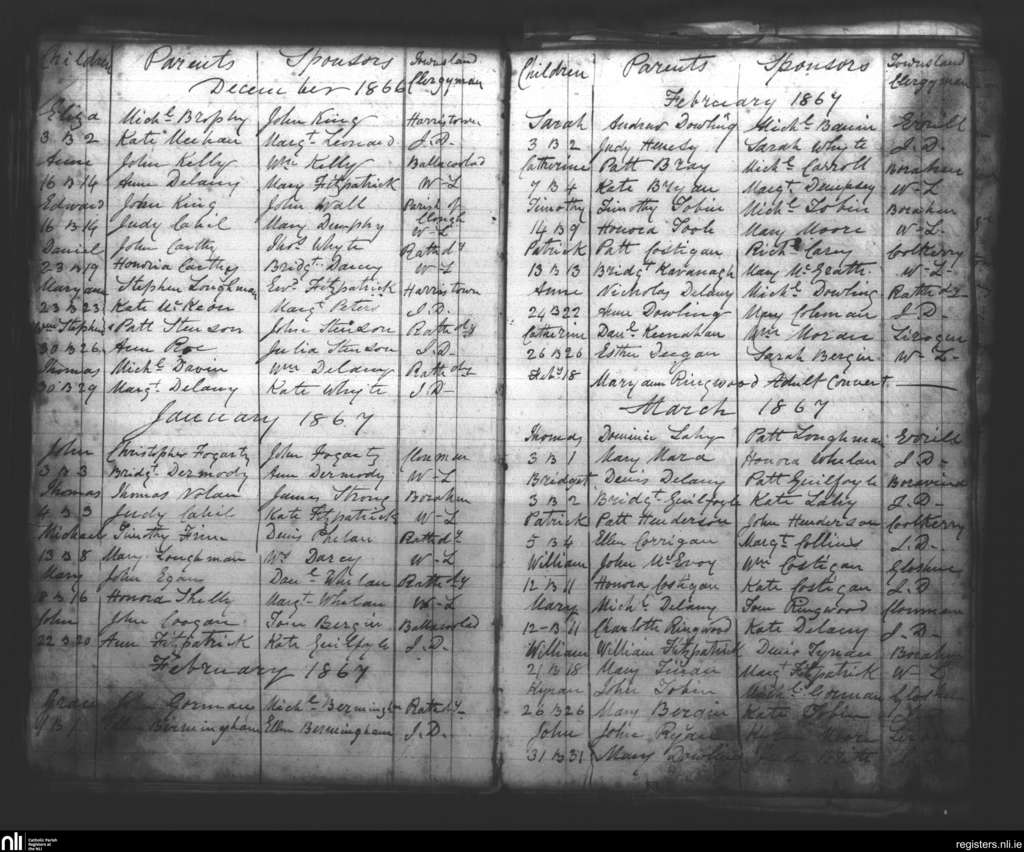 Children Parents Sponsors Townsland Clergyman
December 1866
Eliza Michl. Brophy John King Harristown
3 B 2 Kate Meehan Margt. Leonard J.D.
Anne John Kelly Wm. Kelly Ballacolad
16 B 14 Anne Delany Mary Fitzpatrick W-L
Edward John King John Wall Parish of Clough
16 B 14 Judy Cahil Mary Dunphy W-L
Daniel John Carthy Thos. Whyte Rathdy
23 B 19 Honoria Carthy Bridgt. Darcy W-L
Maryanne Stephen Loughman Edwd. Fitzpatrick Harristown
23 B 23 Kate McKeon Margt. Peters J.D.
Wm Stephen Patt Stenson John Stenson Rathdy
30 B 26 Ann Roe Julia Stenson J.D.
Thomas Michl. Davin Wm Delany Rathdy
30 B 29 Margt. Delany Kate Whyte J.D.
January 1867
John Christopher Fogarty John Fogarty Clonman
3 B 3 Bridgt. Dermody Ann Dermody W-L
Thomas Thomas Nolan James Strong Borahan
4 B 3 Judy Cahil Kate Fitzpatrick W-L
Michael Timothy Finn Denis Phelan Rathdy
13 B 8 Mary Loughman Wm. Darcy W-L
Mary John Egan Danl. Whelan Rathdy
8 B 16 Honora Skelly Margt. Whelan W-L
John John Coogan Tom Bergin Ballacolad
22 B 20 Ann Fitzpatrick Kate Guilfoyle J.D.
February 1867
Grace John Gorman Michl. Bermingham Rathdy
Bermingham Ellen Bermingham J.D.
Children Parents Sponsors Townsland Clergyman
February 1867
Sarah Andrew Dowling Michl. Bannin Evrill
3 B 2 Judy Henesy Sarah Whyte J.D.
Catherine Patt Bray Michl. Carroll Borahan
7 B 4 Kate Bryan Margt. Dempsey W-L
Timothy Timothy Tobin Michl. Tobin Borahan
14 B 9 Honora Toole Mary Moore W-L
Patrick Patt Costigan Richd. Carey Coolkerry
13 B 13 Bridgt. Kavanagh Mary McGrath W-L
Anne Nicholas Delany Michl. Dowling Rathdy
24 B 22 Anne Dowling Mary Coleman J.D.
Catherine Danl. Keenahan Wm Moran Lirogue
26 B 26 Esther Deegan Sarah Bergin W-L
Feby 18 Maryann Ringwood Adult Convert
March 1867
Thomas Dominic Lahy Patt Loughman Evrill
3 B 1 Mary Mara Honora Whelan J.D.
Bridget Denis Delany Patt Guilfoyle
3 B 2 Bridgt. Guilfoyle Kate Lahy J.D.
Patrick Patt Henderson John Henderson Coolkerry
5 B 4 Ellen Corrigan Margt. Collins J.D.
William John McEvoy Wm Costigan Gloshue
12 B 11 Honora Costigan Kate Costigan J.D
Mary Michl. Delany Tom Ringwood Clonman
12 B 11 Charlotte Ringwood Kate Delany J.D.
William William Fitzpatrick Denis Tynan Borahan
21 B 18 Mary Tinan Margt. Fitzpatrick W-L
Kyran John Tobin Michl. Gorman
26 B 26 Mary Bergin Kate Tobin
John John Ryan
31 B 31 Mary Dowling
nli
Catholic Parish Registers at the NLI
registers.nli.ie